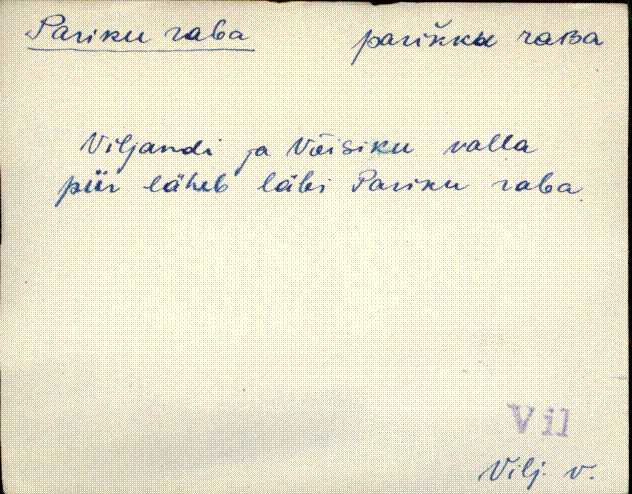 Pariku raba parĭkku raBa
Viljandi ja Võisiku valla
piir läheb läbi Pariku raba.
Vil
Vilj. v.